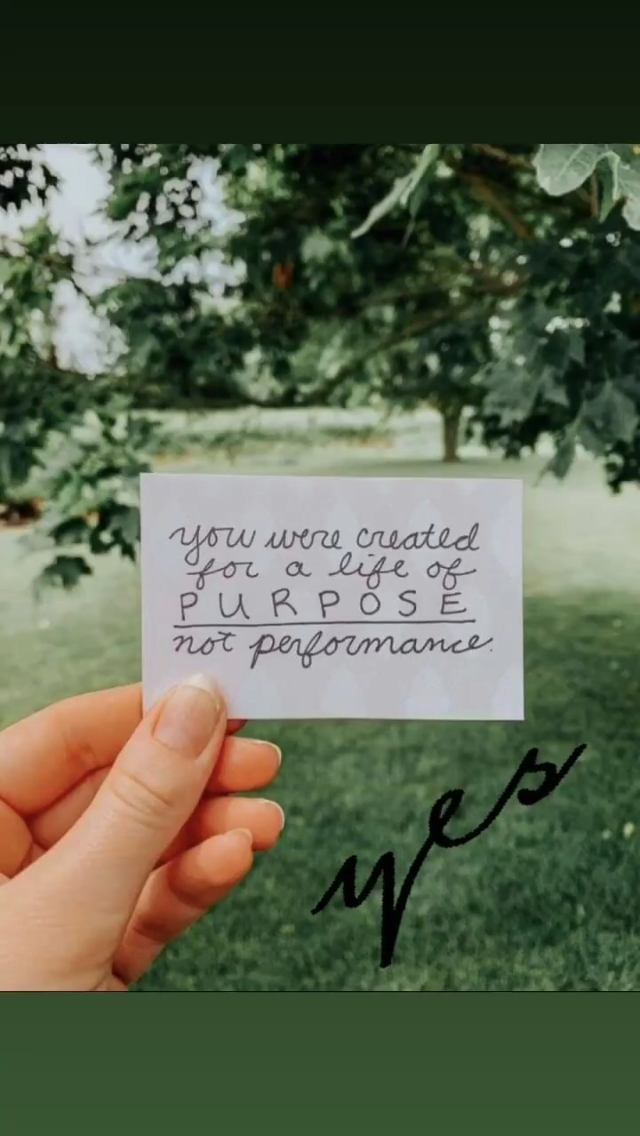 you were created
for a life of
PURPOSE
not performance.
yes